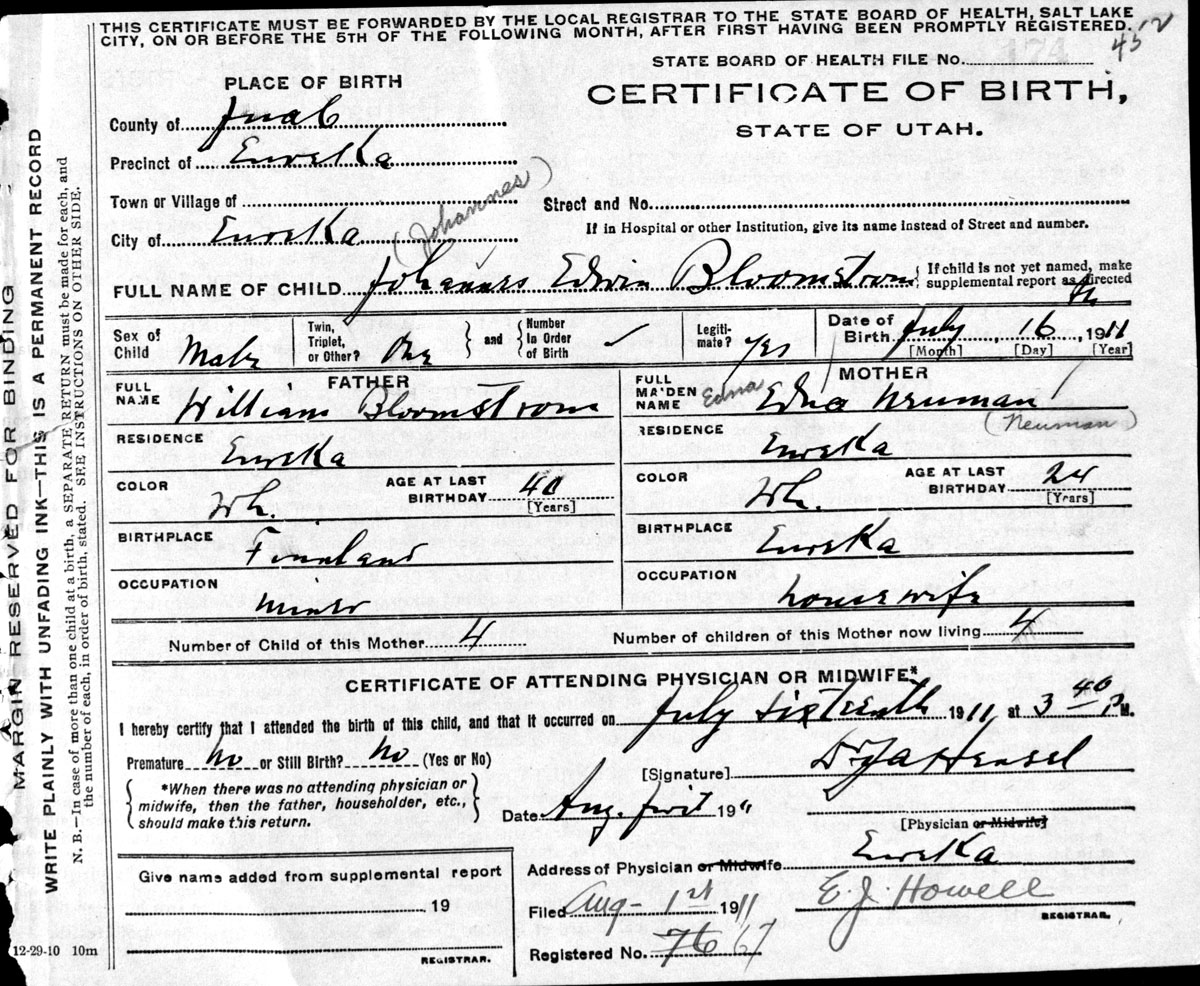 THIS CERTIFICATE MUST BE FORWARDED BY THE LOCAL REGISTRAR TO THE STATE BOARD OF HEALTH, SALT LAKE
CITY, ON OR BEFORE THE 5TH OF THE FOLLOWING MONTH, AFTER FIRST HAVING BEEN PROMPTLY REGISTERED.
STATE BOARD OF HEALTH FILE No.
174
PLACE OF BIRTH
CERTIFICATE OF BIRTH,
STATE OF UTAH.
County of Juab
Precinct of Eureka
Town or Village of
Street and No.
City of Eureka
(Johannes)
If in Hospital or other Institution, give its name instead of Street and number.
FULL NAME OF CHILD Johannes Edwin Bloomstrom { If child is not yet named, make
supplemental report as directed
Sex of Child Male
Twin, Triplet, or Other? One } and { Number In Order of Birth ✓
Legitimate? Yes
Date of Birth July, 16, 1911
[Month] [Day] [Year]
FATHER
FULL NAME William Bloomstrom
MOTHER
FULL MAIDEN NAME Edna Edna Neuman
(Neuman)
RESIDENCE Eureka
RESIDENCE Eureka
COLOR Wh. AGE AT LAST BIRTHDAY 40 [Years]
COLOR Wh. AGE AT LAST BIRTHDAY 24 [Years]
BIRTHPLACE Finland
BIRTHPLACE Eureka
OCCUPATION Miner
OCCUPATION housewife
Number of Child of this Mother 4
Number of children of this Mother now living 4
CERTIFICATE OF ATTENDING PHYSICIAN OR MIDWIFE*
I hereby certify that I attended the birth of this child, and that it occurred on July Sixteenth 1911, at 3 40 P.M.
Premature No or Still Birth? No (Yes or No)
[Signature] Dr J A Hensel
{ *When there was no attending physician or
midwife, then the father, householder, etc.,
should make this return. }
Date Aug. first 1911
[Physician or Midwife]
Address of Physician or Midwife Eureka
Give name added from supplemental report
19
REGISTRAR.
Filed Aug- 1st 1911
E. J. Howell
REGISTRAR.
Registered No. 76 67
12-29-10 10m
MARGIN RESERVED FOR BINDING
WRITE PLAINLY WITH UNFADING INK—THIS IS A PERMANENT RECORD
N. B.—In case of more than one child at a birth, a SEPARATE RETURN must be made for each, and
the number of each, in order of birth, stated. SEE INSTRUCTIONS ON OTHER SIDE.